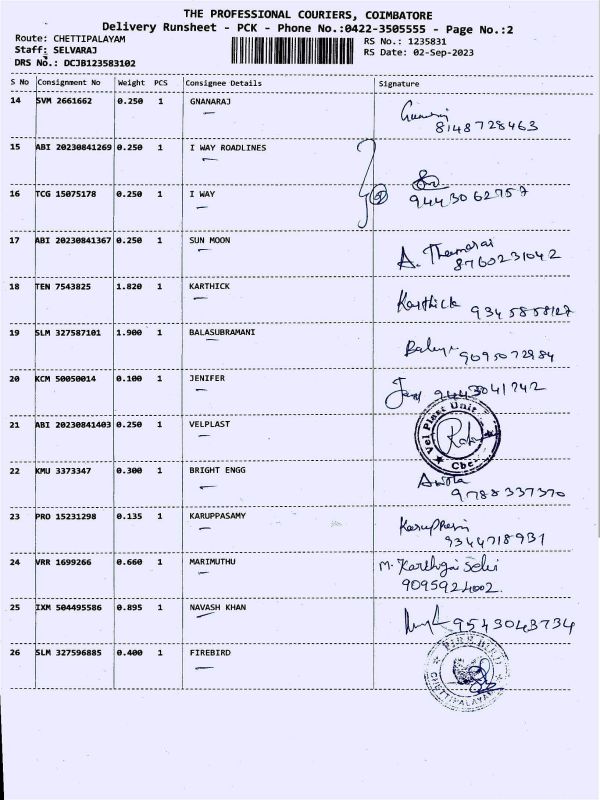 THE PROFESSIONAL COURIERS, COIMBATORE
Delivery Runsheet - PCK - Phone No.:0422-3505555 - Page No.:2
Route: CHETTIPALAYAM
RS No.: 1235831
Staff: SELVARAJ
RS Date: 02-Sep-2023
DRS No.: DCJB123583102
S No Consignment No Weight PCS Consignee Details Signature
14 SVM 2661662 0.250 1 GNANARAJ
8148728463
15 ABI 20230841269 0.250 1 I WAY ROADLINES
16 TCG 15075178 0.250 1 I WAY
9443062757
17 ABI 20230841367 0.250 1 SUN MOON A. Thamarai
8760231042
18 TEN 7543825 1.820 1 KARTHICK Karthick 9345858127
19 SLM 327587101 1.900 1 BALASUBRAMANI 9095072984
20 KCM 50050014 0.100 1 JENIFER 9443041742
21 ABI 20230841403 0.250 1 VELPLAST Vel Plast Unit Cbe
22 KMU 3373347 0.300 1 BRIGHT ENGG
9788337370
23 PRO 15231298 0.135 1 KARUPPASAMY
9344718931
24 VRR 1699266 0.660 1 MARIMUTHU M. Karthgai Selvi
9095924002.
25 IXM 504495586 0.895 1 NAVASH KHAN 9543043734
26 SLM 327596885 0.400 1 FIREBIRD FIREBIRD CHETTIPALAYAM